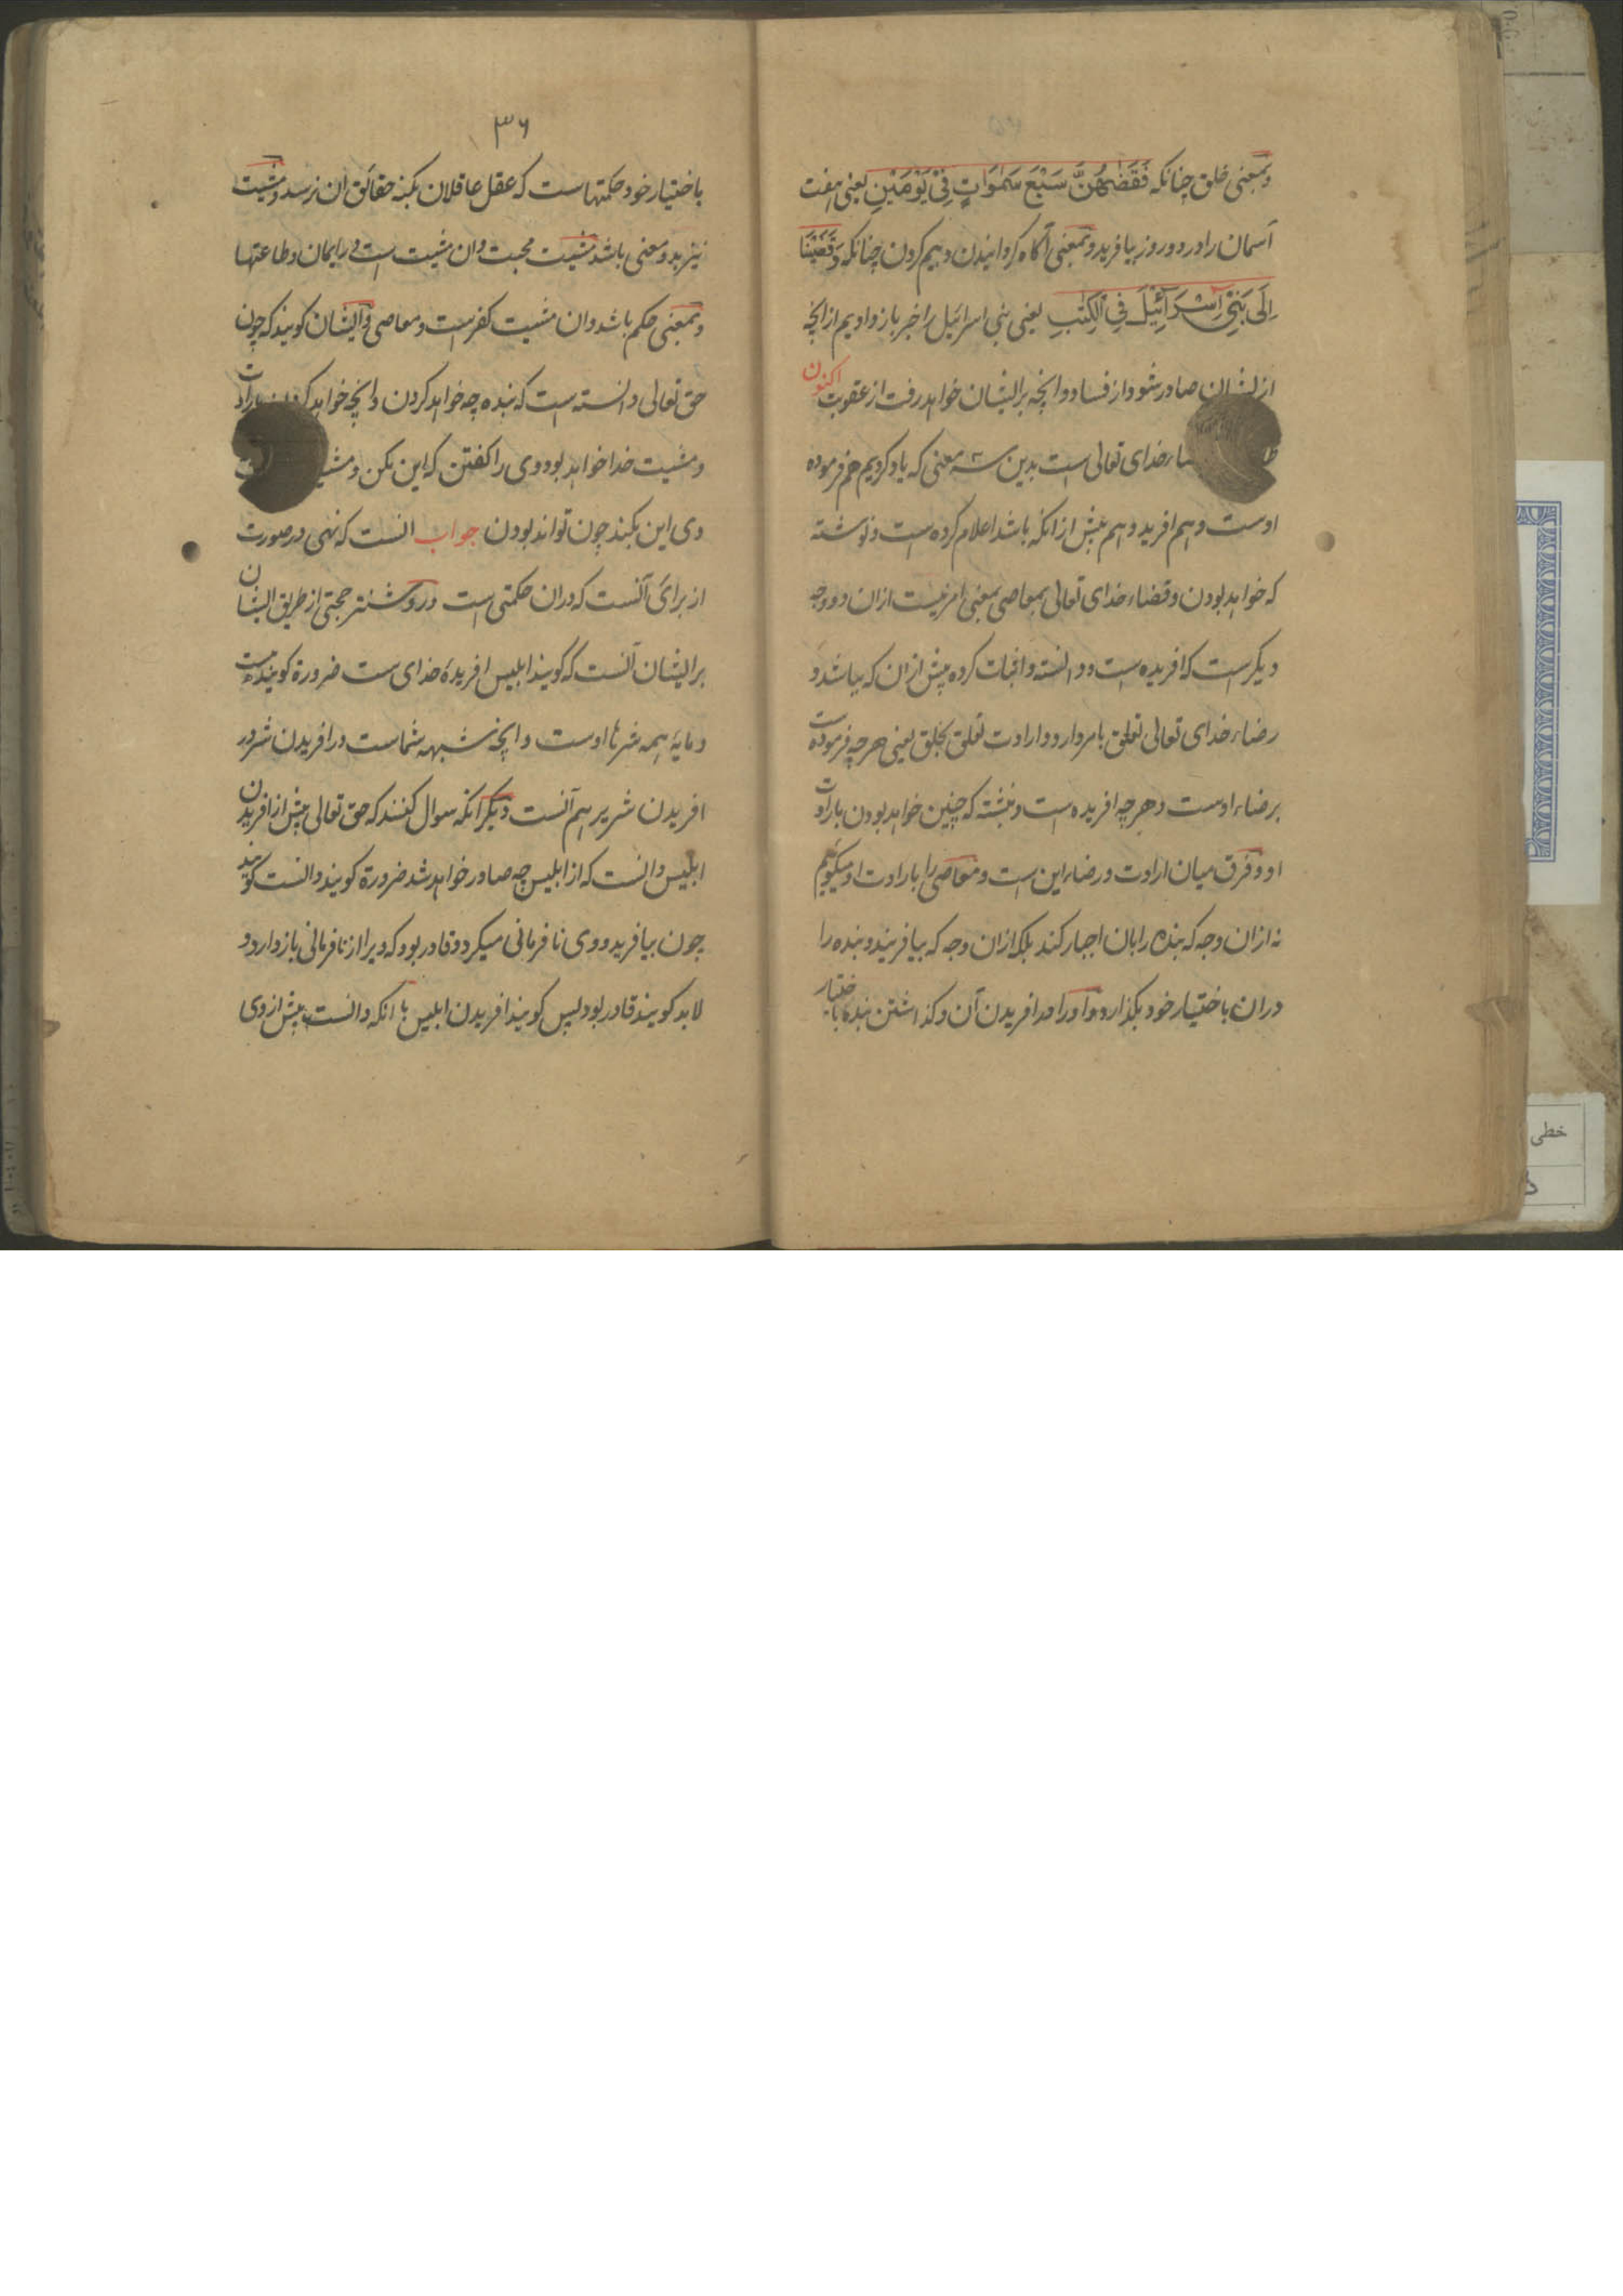 وبمعنی خلق چنانکه فَقَضٰهُنَّ سَبْعَ سَمٰوَاتٍ فِیْ یَوْمَیْنِ یعنی هفت
آسمان را در دو روز بیافرید و بمعنی آکاه کردانیدن و بیم کردن چنانکه وَقَضَیْنَا
اِلَی بَنِیْ اِسْرَآئِیْلَ فِی الْکِتٰبِ یعنی بنی اسرائیل را خبر باز دادیم از انچه
از ایشان صادر شود از فساد و انچه بر ایشان خواهد رفت از عقوبت اکنون
خدای تعالی است بدین سه معنی که یاد کردیم هم فرموده
اوست و هم افرید و هم پیش از انکه باشد اعلام کرده است و نوشته
که خواهد بودن و قضاء خدای تعالی بمعاصی بمعنی امر نیست ازان دو وجه
دیکر است که افریده است و دانسته و اثبات کرده پیش ازان که بباشد و
رضاء خدای تعالی تعلق بامر دارد و ارادت تعلق بخلق یعنی هرچه فرموده است
برضاء اوست و هرچه افریده است و نبشته که چنین خواهد بودن بارادت
او و فرق میان ارادت و رضاء این است و معاصی را بارادت او میکوئیم
نه ازان وجه که بنده را بان اجبار کند بلکه ازان وجه که بیافریند و بنده را
دران باختیار خود بکذارد و او را در افریدن آن و کذاشتن بنده با اختیار
۳۶
باختیار خود حکمتهاست که عقل عاقلان بکنه حقائق ان نرسد و مشیت
نیز بدو معنی باشد مشیت محبت و ان مشیت است در ایمان و طاعتها
و بمعنی حکم باشد و ان مشیت کفرست و معاصی و ایشان کویند که چون
حق تعالی دانسته است که بنده چه خواهد کردن و انچه خواهد کردن بارادت
و مشیت خدا خواهد بود وی را کفتن که این مکن و
وی این بکند چون تواند بودن جواب انست که نهی در صورت
از برای آنست که دران حکمتی است و روشنتر حجتی از طریق ایشان
بر ایشان آنست که کویند ابلیس افریدهٔ خدای ست ضرورة کویند هست
و مایهٔ همه شرها اوست و انچه شبهه شماست در افریدن شر در
افریدن شریر هم آنست دیکر انکه سوال کنند که حق تعالی پیش از افریدن
ابلیس دانست که از ابلیس چه صادر خواهد شد ضرورة کویند دانست کویند
چون بیافرید و وی نافرمانی میکرد و قادر بود که ویرا از نافرمانی باز دارد و
لابد کویند قادر بود پس کویند افریدن ابلیس با انکه دانست پیش از وی
خطی